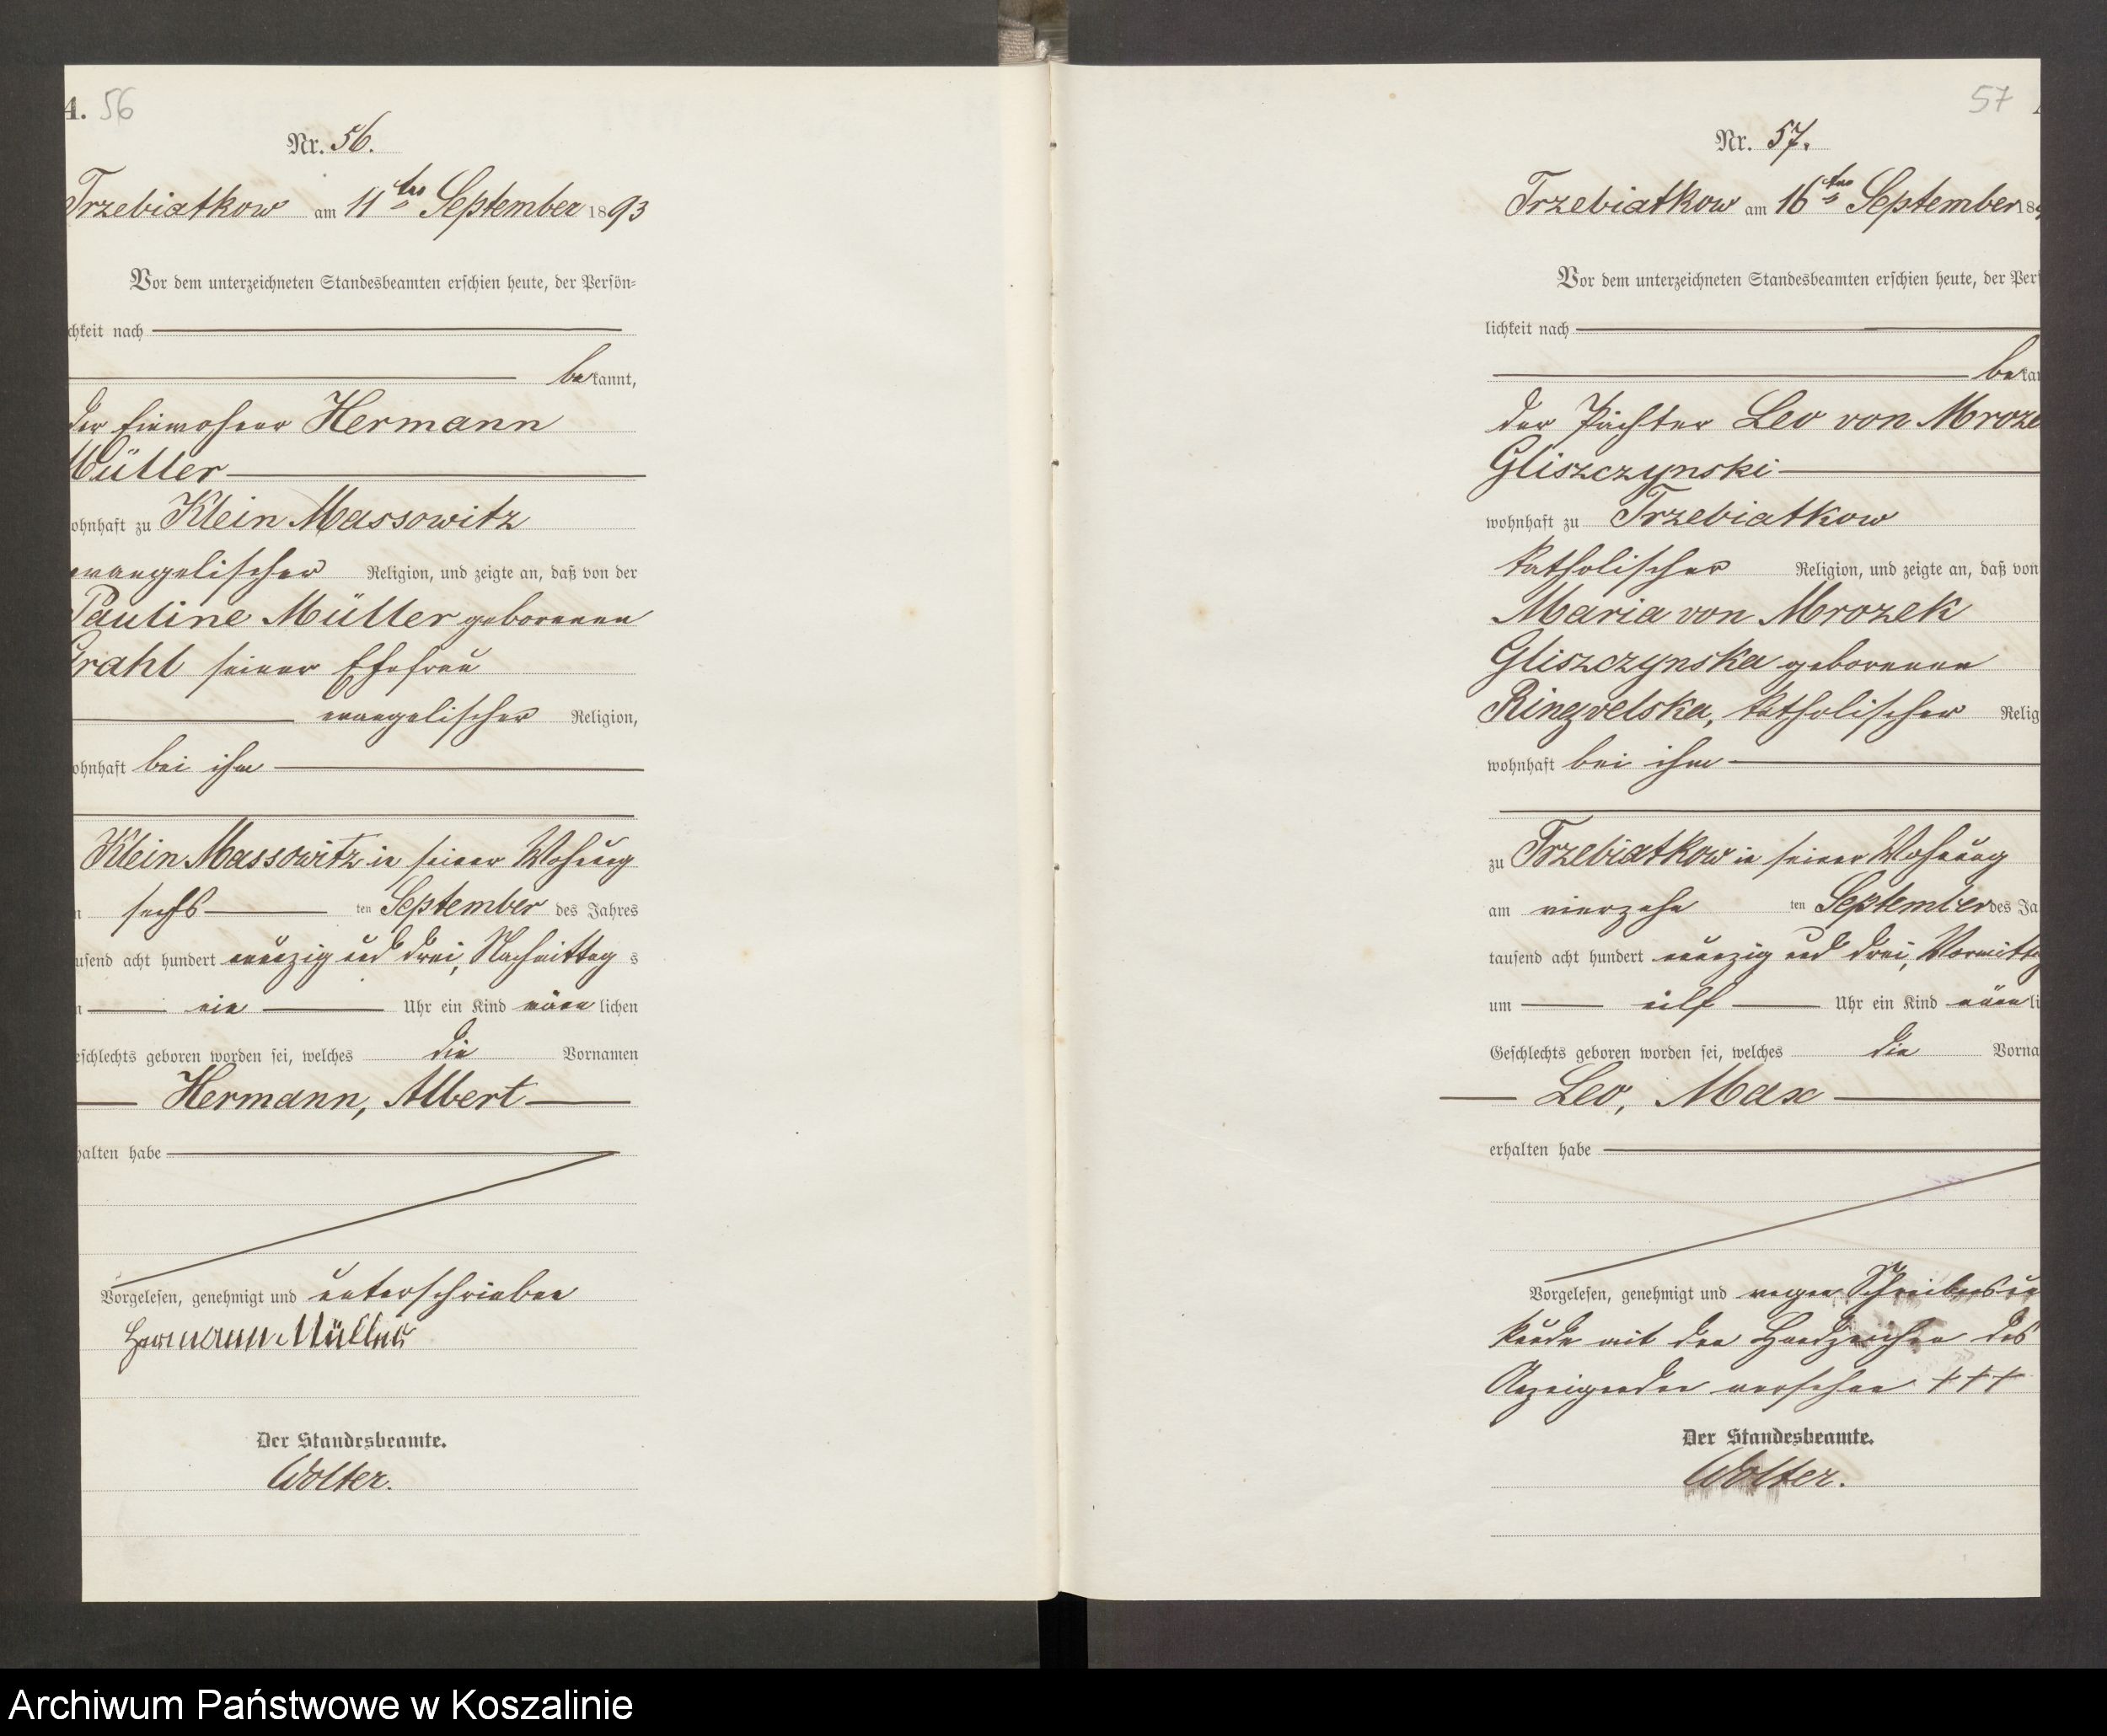 A. 56
Nr. 56.
Trzebiatkow am 11ten September 1893
Vor dem unterzeichneten Standesbeamten erschien heute, der Persön-
chkeit nach
bekannt,
der Einwohner Hermann
Müller
ohnhaft zu Klein Massowitz
evangelischer Religion, und zeigte an, daß von der
Pauline Müller geborenen
Grahl seiner Ehefrau
evangelischer Religion,
ohnhaft bei ihm
Klein Massowitz in seiner Wohnung
sechs ten September des Jahres
usend acht hundert neunzig und drei, Nachmittag s
ein Uhr ein Kind männlichen
eschlechts geboren worden sei, welches die Vornamen
Hermann, Albert
halten habe
Vorgelesen, genehmigt und unterschrieben
Hermann Müller
Der Standesbeamte.
Wolter.
57
Nr. 57.
Trzebiatkow am 16ten September 189
Vor dem unterzeichneten Standesbeamten erschien heute, der Pers
lichkeit nach
bekan
der Pächter Leo von Mroze
Gliszczynski
wohnhaft zu Trzebiatkow
katholischer Religion, und zeigte an, daß von
Maria von Mrozek
Gliszczynska geborenen
katholischer Relig
wohnhaft bei ihm
zu Trzebiatkow in seiner Wohnung
am vierzehn ten September des Ja
tausend acht hundert neunzig und drei, Vormittag
um eilf Uhr ein Kind männli
Geschlechts geboren worden sei, welches die Vorna
Leo, Max
erhalten habe
Vorgelesen, genehmigt und wegen Schreibensun
kunde mit den Handzeichen des
Anzeigenden versehen +++
Der Standesbeamte.
Wolter.
Archiwum Państwowe w Koszalinie